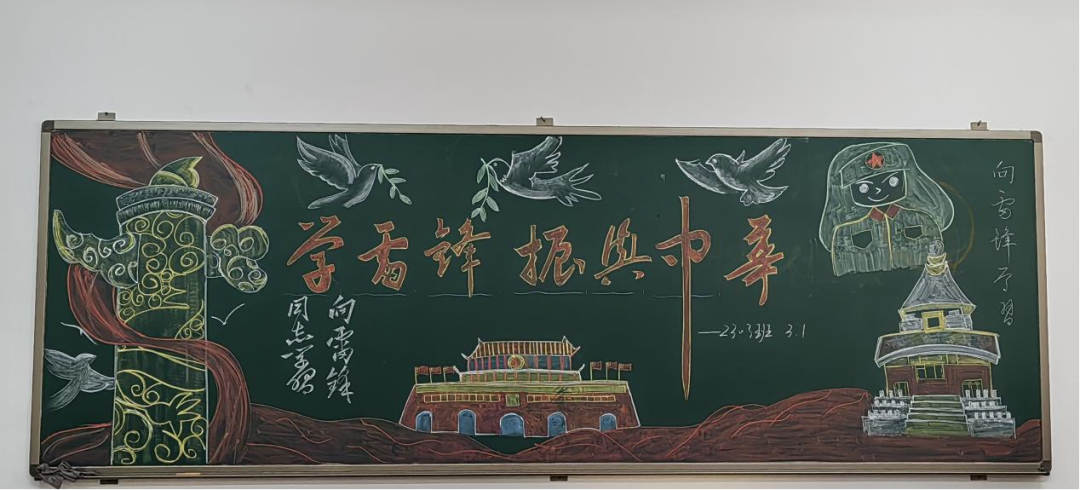 学雷锋 振兴中华
向雷锋
同志学习
—2303班 3.1
向雷锋学习